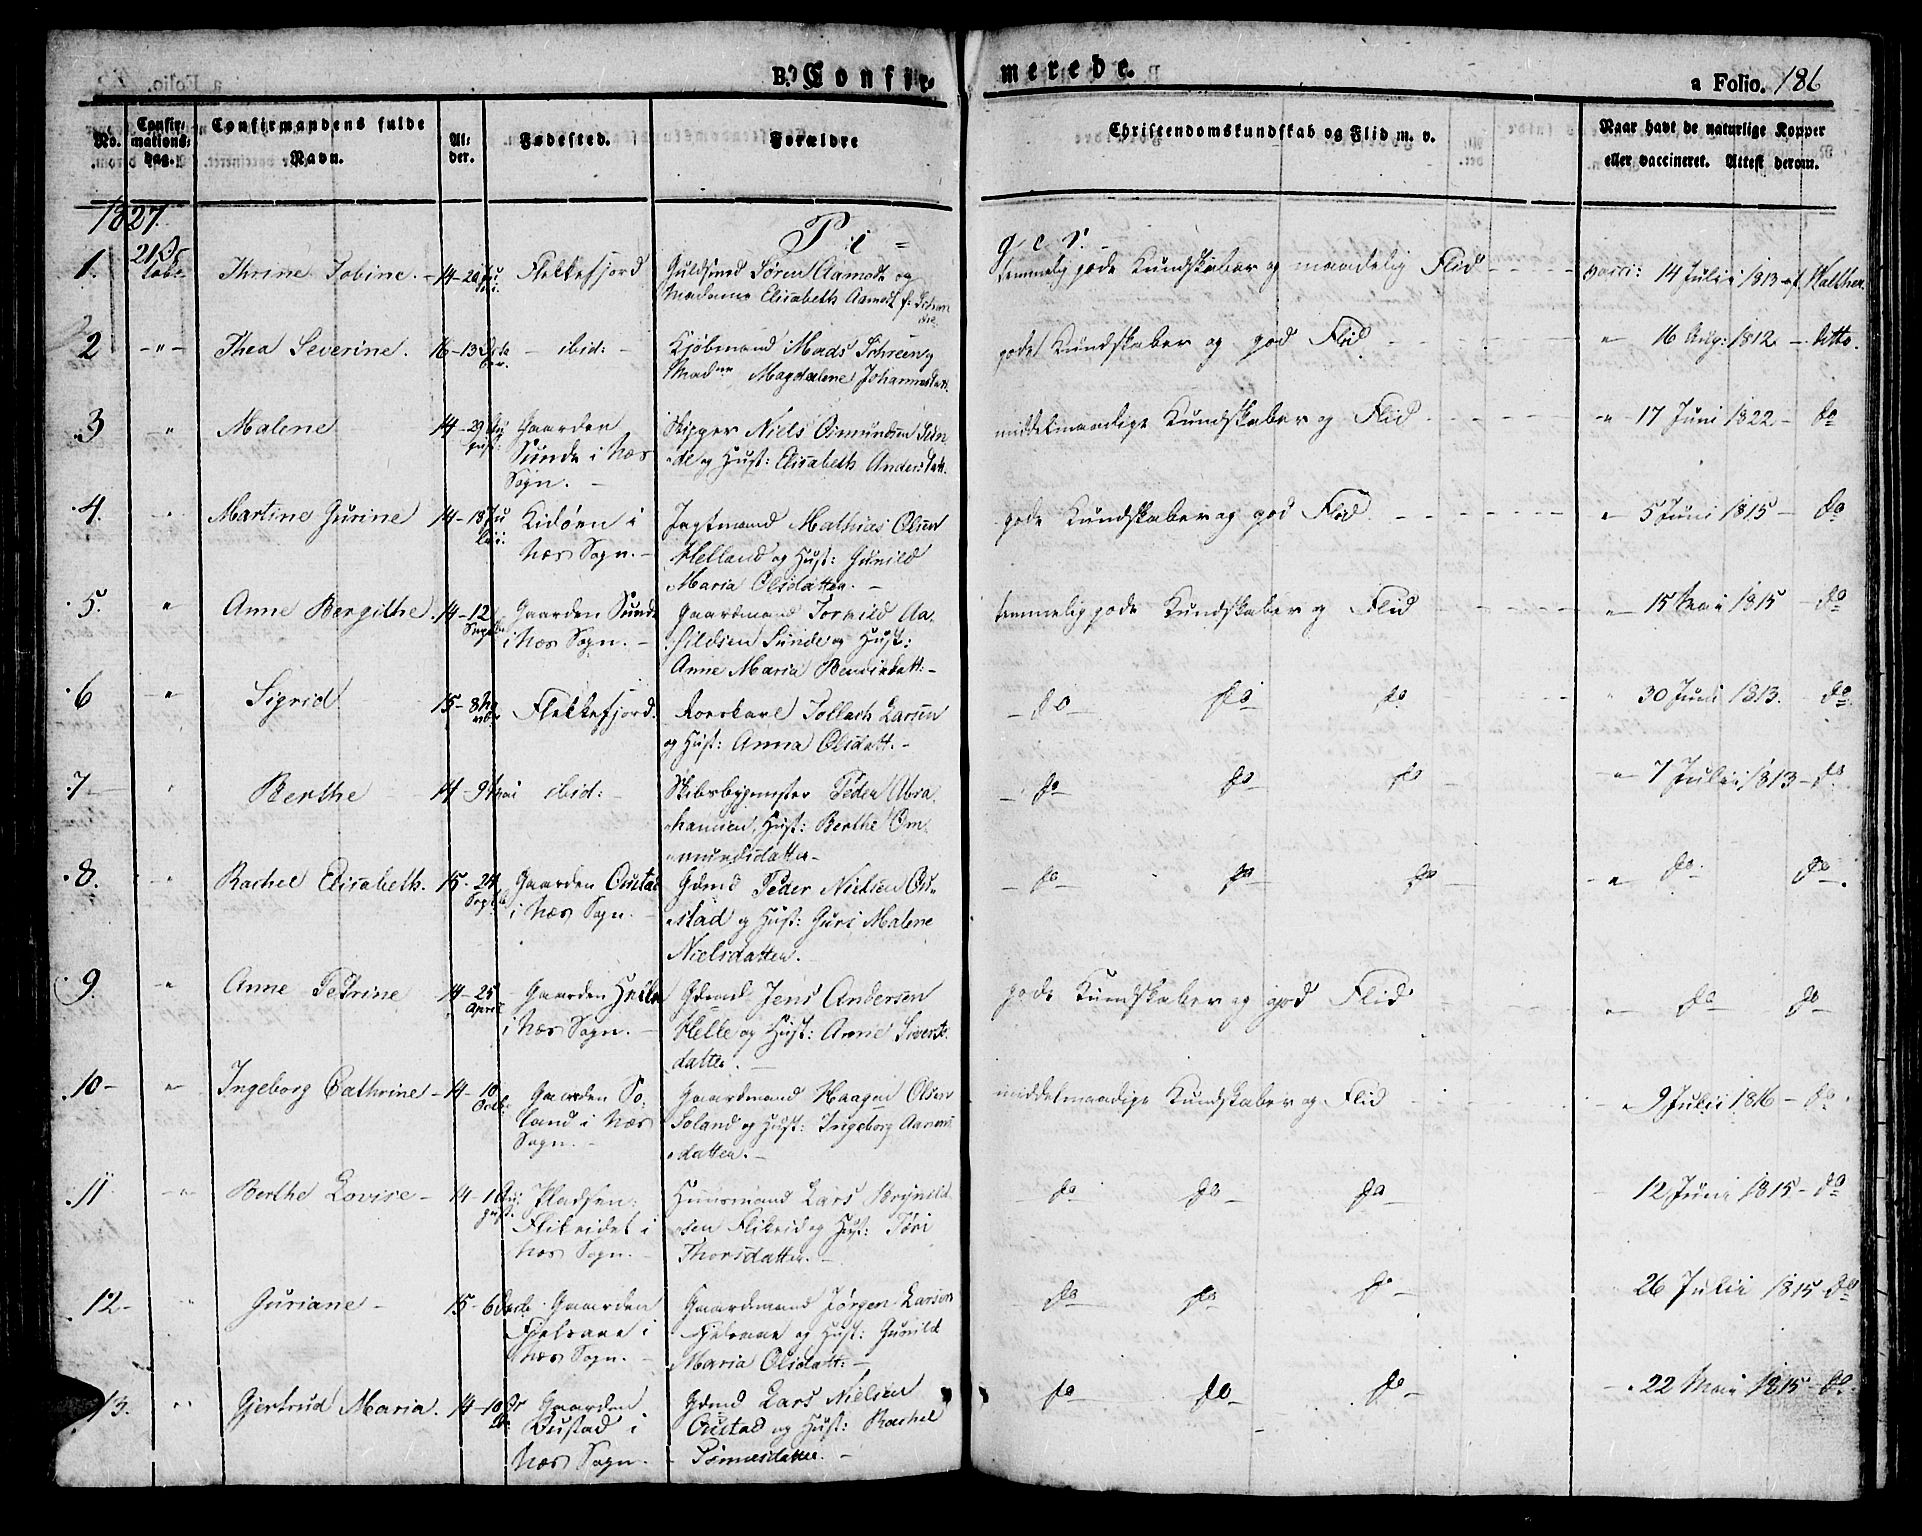 B.) Confir-
merede.
a Folio. 186
No.
Confir-
mations-
dag.
Confirmandens fulde
Navn.
Al-
der.
Fødested.
Forældre
Christendomskundskab og Flid m. v.
Naar havt de naturlige Kopper
eller vaccineret. Attest derom.
1827.
P i -
g e r.
1. Thrine Tobine. - 14 - Flekkefjord Guldsmed Sören Aamodt og
Madame Elisabeth Aamodt f.
temmelig gode Kundskaber og maadelig Flid vacci: 14 Julii 1813 af Walther.
2 - " - Thea Severine. 16 - 13 - ibid: - Kjöbmand Mads
Magdalene
gode Kundskaber og god Flid " 16 Aug: 1812 - ditto.
3 " Malene 14 - 29 Au
gust: Gaarden
Sunde i Næs
Sogn. -
Skipper Niels Osmundsen Sun
de og Hust: Elisabeth Andersdatt.
middelmaadige Kundskaber og Flid - " 17 Juni 1822 - do
4. " Martine Gurine 14 - 18 Ju
lii: Kidöen i
Næs Sogn. -
Jagtmand Mathias Olsen
Helland og Hust: Gunild
Maria Olsdatter. -
gode Kundskaber og god Flid " 5 Juni 1815 - do
5. " Anne Bergithe. 14 - 12 Gaarden Sunde
i Næs Sogn. -
Gaardmand Torkild Aa-
Sunde og Hust:
Anne Maria
temmelig gode Kundskaber og Flid " 15 Mai 1815 - do
6 " Sigrid 15 - 8 No
vbr Flekkefjord. Tollach Larsen
og Hust: Anna Olsdatt. -
- do do do 30 Juni 1813. - do
7 " Berthe 14 - 9 Mai ibid: - Skibsbygmester Peder Abra
hamsen, Hust: Berthe Om-
mundsdatter -
- do - do do - " 7 Julii 1813 - do
8. " Rachel Elisabeth. 15 - 24
Septb Gaarden Oustad
i Næs Sogn. -
Gdmd Peder Nielsen Ou-
stad og Hust: Guri Malene
Nielsdatter. -
- do - do do - " do do -
9. " Anne Petrine 14 - 25
April Gaarden Helle
i Næs Sogn. -
Gdmd. Jens Andersen
Helle og Hust: Anne Siverts-
datter. -
gode Kundskaber og god Flid " do do -
10 - " Ingeborg Cathrine - 14 - 10
Octb: Gaarden So-
land i Næs
Sogn. -
Gaardmand Haagen Olsen
Soland og Hust: Ingeborg
datter. -
middelmaadige Kundskaber og Flid - " 9 Julii 1816 - do
11 - " Berthe Lovise - 14 - 1 Au
gust. Pladsen
Flikeidet i
Næs Sogn. -
Huusmand Lars Brynild
sen Flikeid og Hust: Tori
Thorsdatter. -
do do - do - 12 Juni 1815 - do
12 - " Guriane - 15 - 6 Gaarden
i
Næs Sogn. -
Gaardmand Jörgen Larsen
og Hust: Gunild
Maria Olsdatt: -
do do - do - 26 Julii 1815 do
13. " Gjertrud Maria. 14 - 10 Gaarden
Oustad i
Næs Sogn. -
Gdmd Lars Nielsen
Oustad og Hust: Rachel
Tönnesdatter. -
do - do - do - - " 22 Mai 1815 - do.